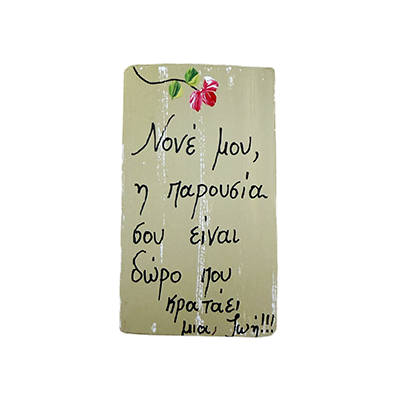 Νονέ μου,
η παρουσία
σου είναι
δώρο που
κρατάει
μια, ζωή!!!